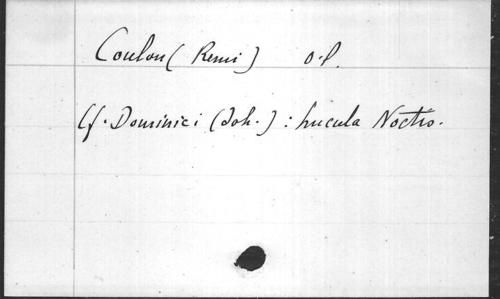 Coulon (Remi) O.P.
Cf. Dominici (Joh.) : Lucula Noctis.